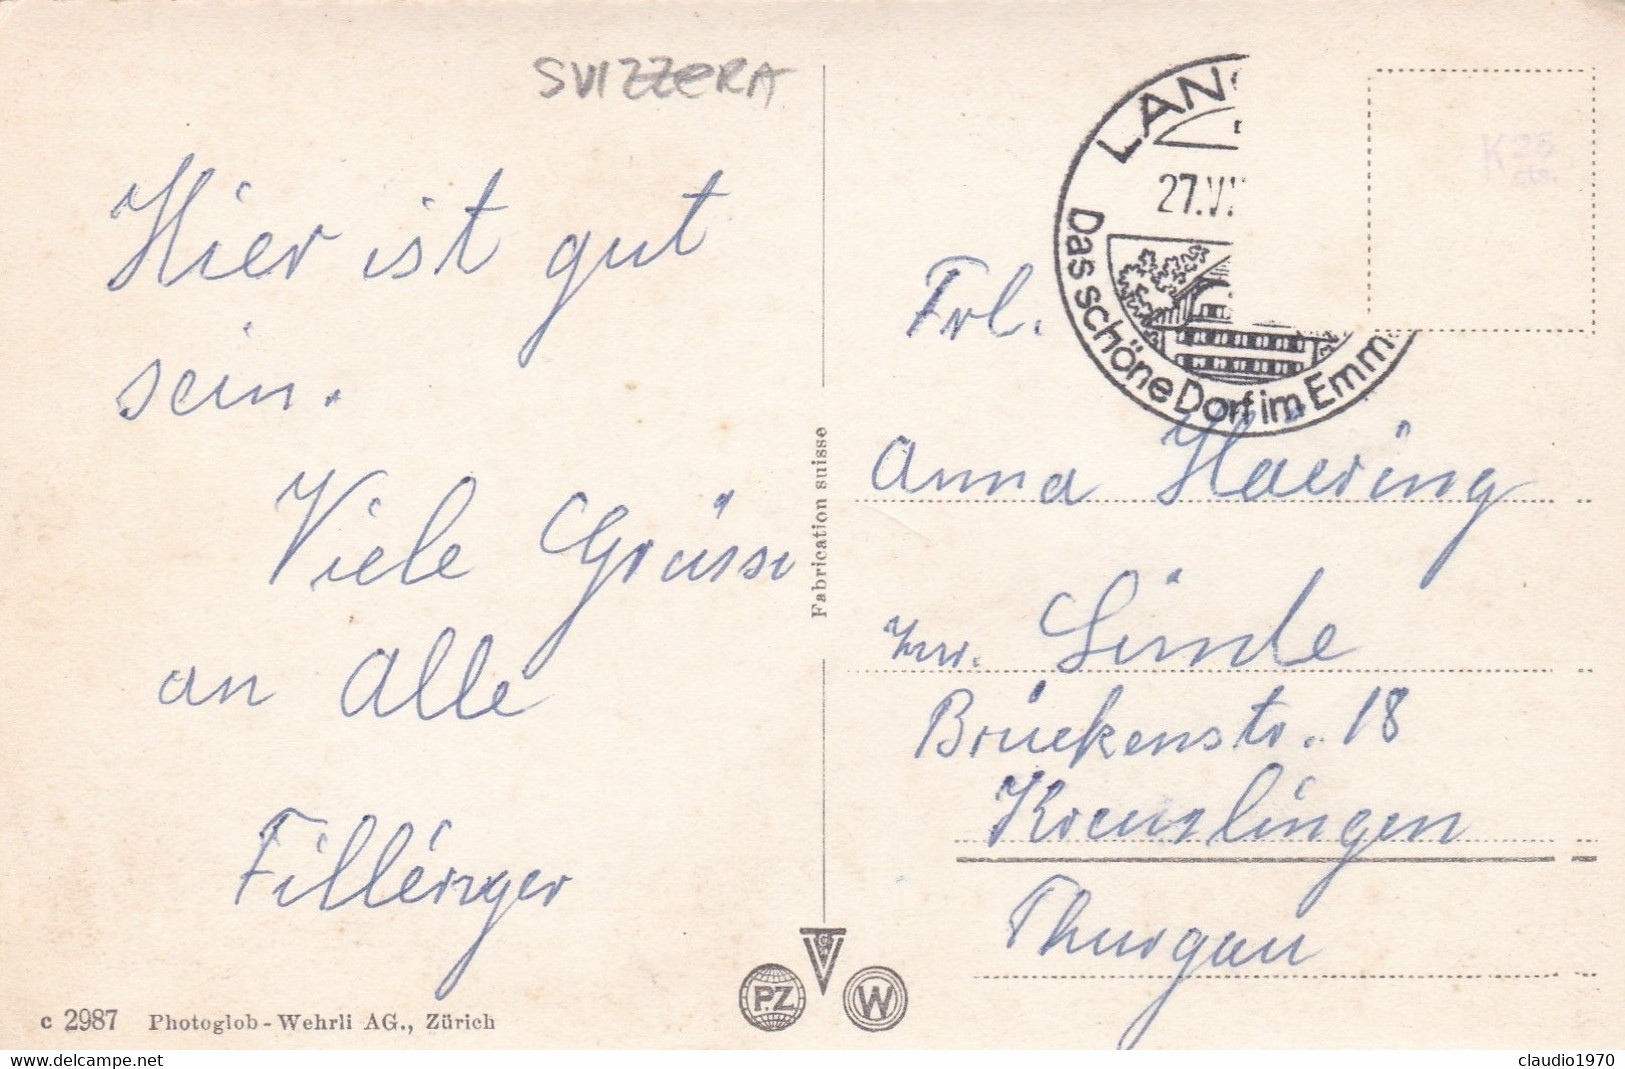 SVIZZERA
Hier ist gut
sein.
Viele Grüsse
an Alle
LANG
27.VI
Das schöne Dorf im Emm
K 25
cts.
Frl.
Anna Haering
zur. Linde
Brückenstr. 18
Kreuzlingen
Thurgau
Fabrication suisse
c 2987 Photoglob-Wehrli AG., Zürich
P.Z
W
delcampe.net
claudio1970